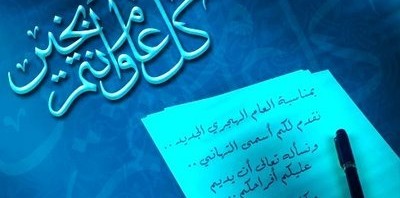 كل عام وانتم بخير
بمناسبة العام الهجري الجديد..
نقدم لكم أسمى التهاني..
ونسأله تعالى أن يديم
عليكم أفراحكم..